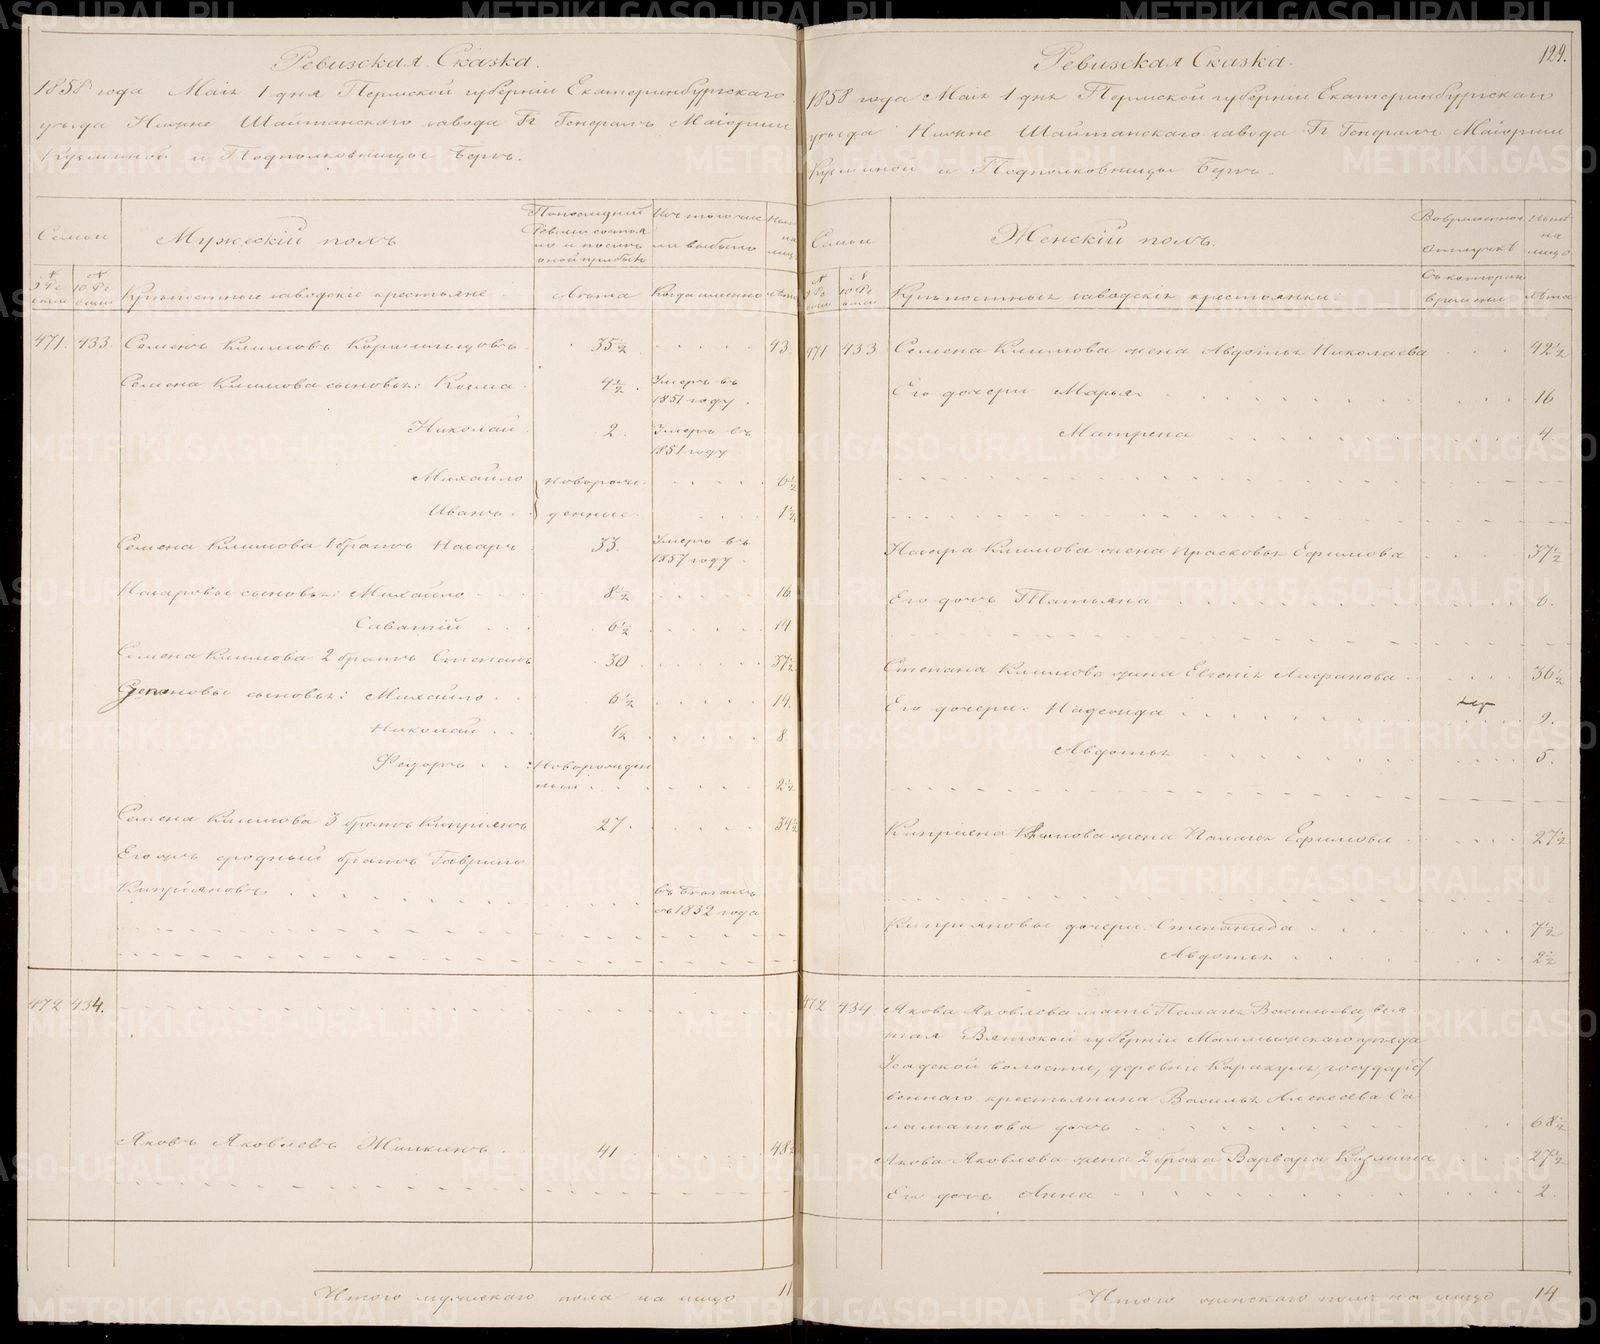 Ревизская Сказка.
1858 года Маія 1 дня Пермской губерніи Екатеринбургскаго
уѣзда Нижне Шайтанскаго завода Гг Генералъ Маіорши
Кузьминой и Подполковницы Бергъ.
Семьи
Мужескій полъ
Изъ того числа выбыло
Ныне на лицо
№ 9 Ревизіи
№ 10 Ревизіи
Крѣпостные заводскіе крестьяне
Лѣта
Когда именно
лѣта
471. 433. Семенъ Климовъ Кормильцовъ 35½ 43
Семена Климова сыновья: Козма 4½ Умеръ въ
1851 году.
Николай 2. Умеръ въ
1851 году
Михайло новорож- 6½
Иванъ денные 1½
Семена Климова 1 братъ Назаръ 33. Умеръ въ
1857 году.
Назаровы сыновья: Михайло 8½ 16
Саватій 6½ 14
Семена Климова 2 братъ Степанъ 30 37½
Степановы сыновья: Михайло 6½ 14.
Николай ½ 8
Федоръ Новорожден
ный 2½
Семена Климова 3 братъ Кипріянъ 27. 34½
Его же сродный братъ Гаврило
Кипріяновъ въ бѣгахъ
съ 1832 года
472 434.
Яковъ Яковлевъ Жилкинъ 41 48½
Итого мужескаго пола на лицо 11
124.
Ревизская Сказка.
1858 года Маія 1 дня Пермской губерніи Екатеринбургскаго
уѣзда Нижне Шайтанскаго завода Гг Генералъ Маіорши
Кузьминой и Подполковницы Бергъ.
Семьи
Женскій полъ.
Во временной отлучкѣ
Ныне на лицо
№ 9 Ревизіи
№ 10 Ревизіи
Крѣпостныя заводскія крестьянки:
Съ котораго времени
лѣта
471 433 Семена Климова жена Авдотья Николаева 42½
Его дочери Марья 16
Матрена 4
Назара Климова жена Прасковья Ефимова 37½
Его дочь Татьяна 6.
Степана Климова жена Евгенія 36½
Его дочери: Надежда 9.
Авдотья 5.
Кипріяна Климова жена Палагея Ефимова 27½
Кипріяновы дочери: Степанида 7½
Авдотья 2½
472 434 Якова Яковлева мать Палагея Васильева, взя
тая Вятской губерніи Малмыжскаго уѣзда
волости, деревни Каракулъ, государст
веннаго крестьянина Василья Алексеева Са
ламатова дочь 68½
Якова Яковлева жена 2 брака Варвара Козмина 27½
Его дочь Анна 2.
Итого женскаго пола на лицо 14
METRIKI.GASO-URAL.RU